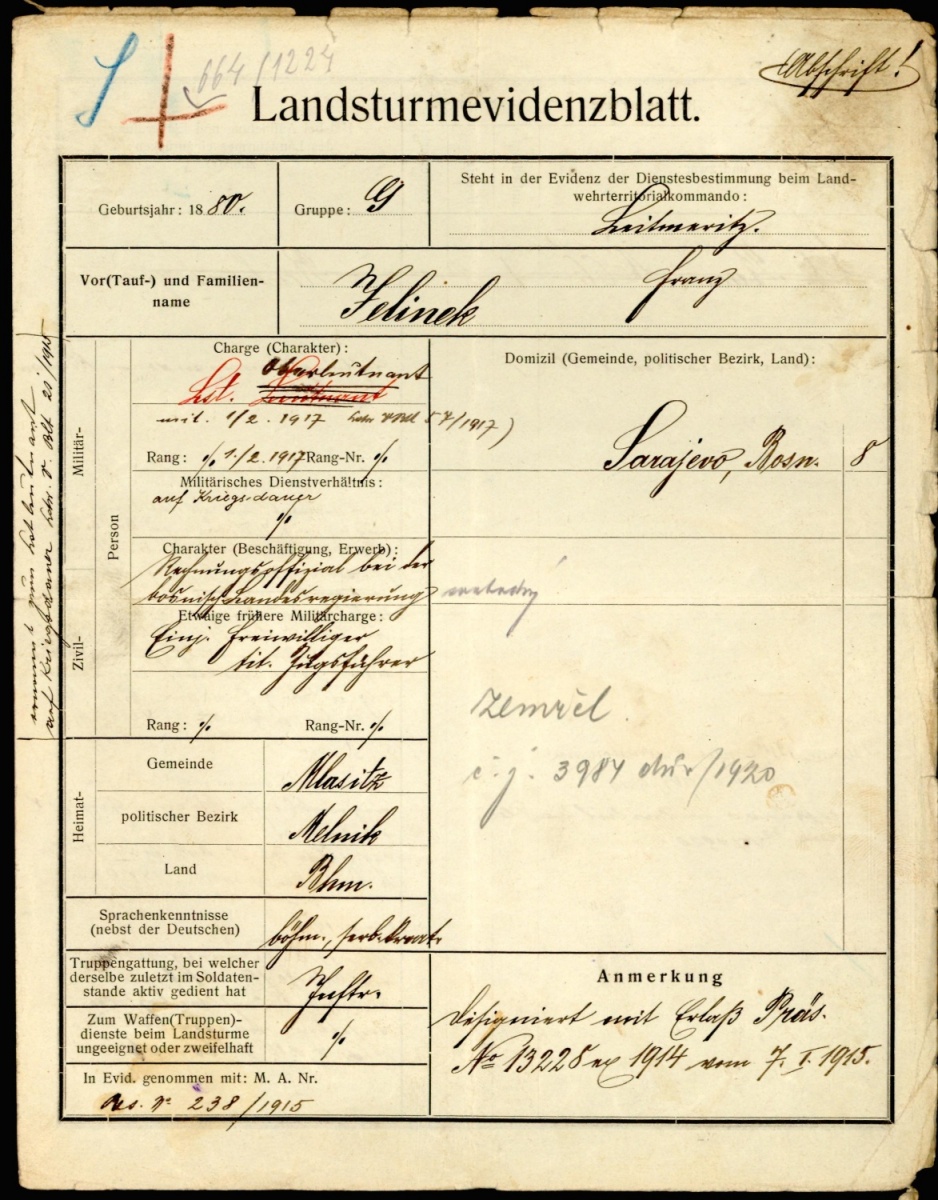 664/1224
Abschrift!
Landsturmevidenzblatt.
Geburtsjahr: 1880.
Gruppe: G
Steht in der Evidenz der Dienstesbestimmung beim Land-
wehrterritorialkommando:
Leitmeritz.
Vor(Tauf-) und Familien-
name
Jelinek Franz
Militär-
Person
Zivil-
Charge (Charakter):
Oberleutnant
Lst. Leutnant
mit 1/2. 1917 57/1917)
Rang: % 1./2. 1917 Rang-Nr. %
Militärisches Dienstverhältnis:
auf Kriegsdauer
%
Charakter (Beschäftigung, Erwerb):
Rechnungsoffizial bei der
bosnisch Landesregierung
Etwaige frühere Militärcharge:
Einj. Freiwilliger
tit. Zugsführer
Rang: % Rang-Nr. %
ernannt zum Lstleutnant
auf Kriegsdauer V. Blt. 20/1915
Domizil (Gemeinde, politischer Bezirk, Land):
Sarajevo, Bosn. 8
zemřel
č. j. 3984 /1920
Heimat-
Gemeinde
Mlasitz
politischer Bezirk
Melnik
Land
Bhm.
Sprachenkenntnisse
(nebst der Deutschen)
böhm., serb.kroat.
Truppengattung, bei welcher
derselbe zuletzt im Soldaten-
stande aktiv gedient hat
Inftr.
Zum Waffen(Truppen)-
dienste beim Landsturme
ungeeignet oder zweifelhaft
%
In Evid. genommen mit: M. A. Nr.
res. Nr. 238/1915
Anmerkung
Designiert mit Erlaß Präs.
No 13228 ex 1914 vom 7. I. 1915.